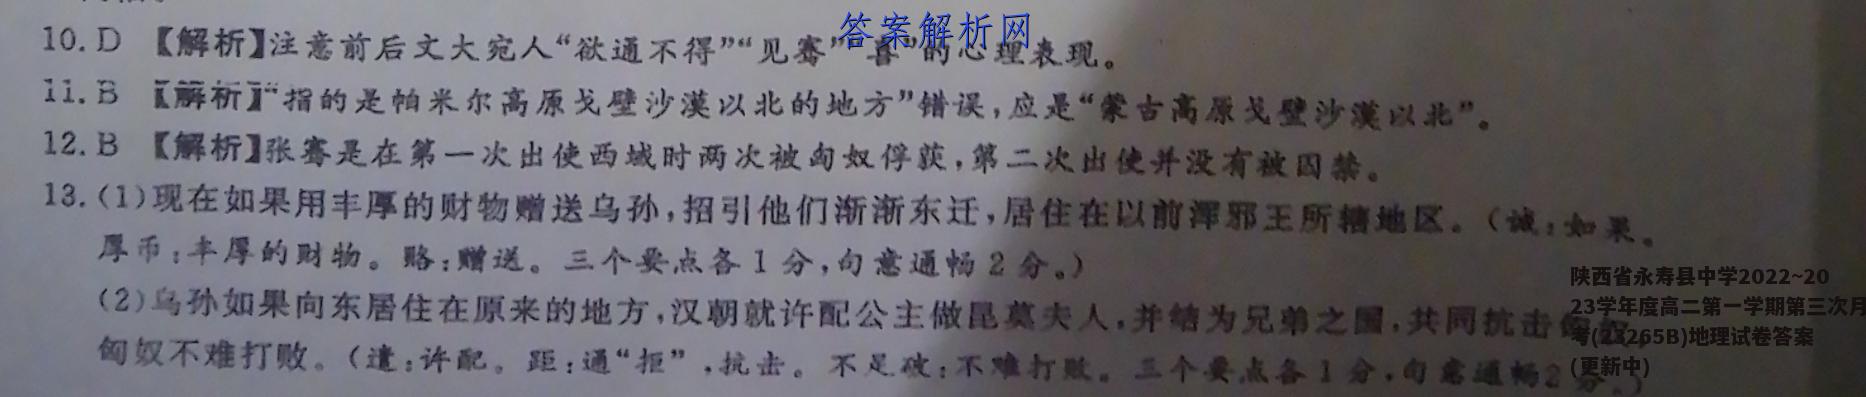 答案解析网
10. D 【解析】注意前后文大宛人“欲通不得”“见骞”“喜”的心理表现。
11. B 【解析】“指的是帕米尔高原戈壁沙漠以北的地方”错误,应是“蒙古高原戈壁沙漠以北”。
12. B 【解析】张骞是在第一次出使西域时两次被匈奴俘获,第二次出使并没有被囚禁。
13. (1)现在如果用丰厚的财物赠送乌孙,招引他们渐渐东迁,居住在以前浑邪王所辖地区。(诚:如果。
厚币:丰厚的财物。赂:赠送。三个要点各1分,句意通畅2分。)
(2)乌孙如果向东居住在原来的地方,汉朝就许配公主做昆莫夫人,并结为兄弟之国,共同抗击
匈奴不难打败。(遣:许配。距:通“拒”,抗击。不足破:不难打败。三个要点各1分,句意通畅2分。)
陕西省永寿县中学2022~20
23学年度高二第一学期第三次月
考(23265B)地理试卷答案
(更新中)